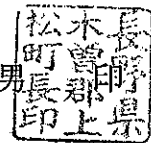 男 印
長野県
木曽郡上
松町長印